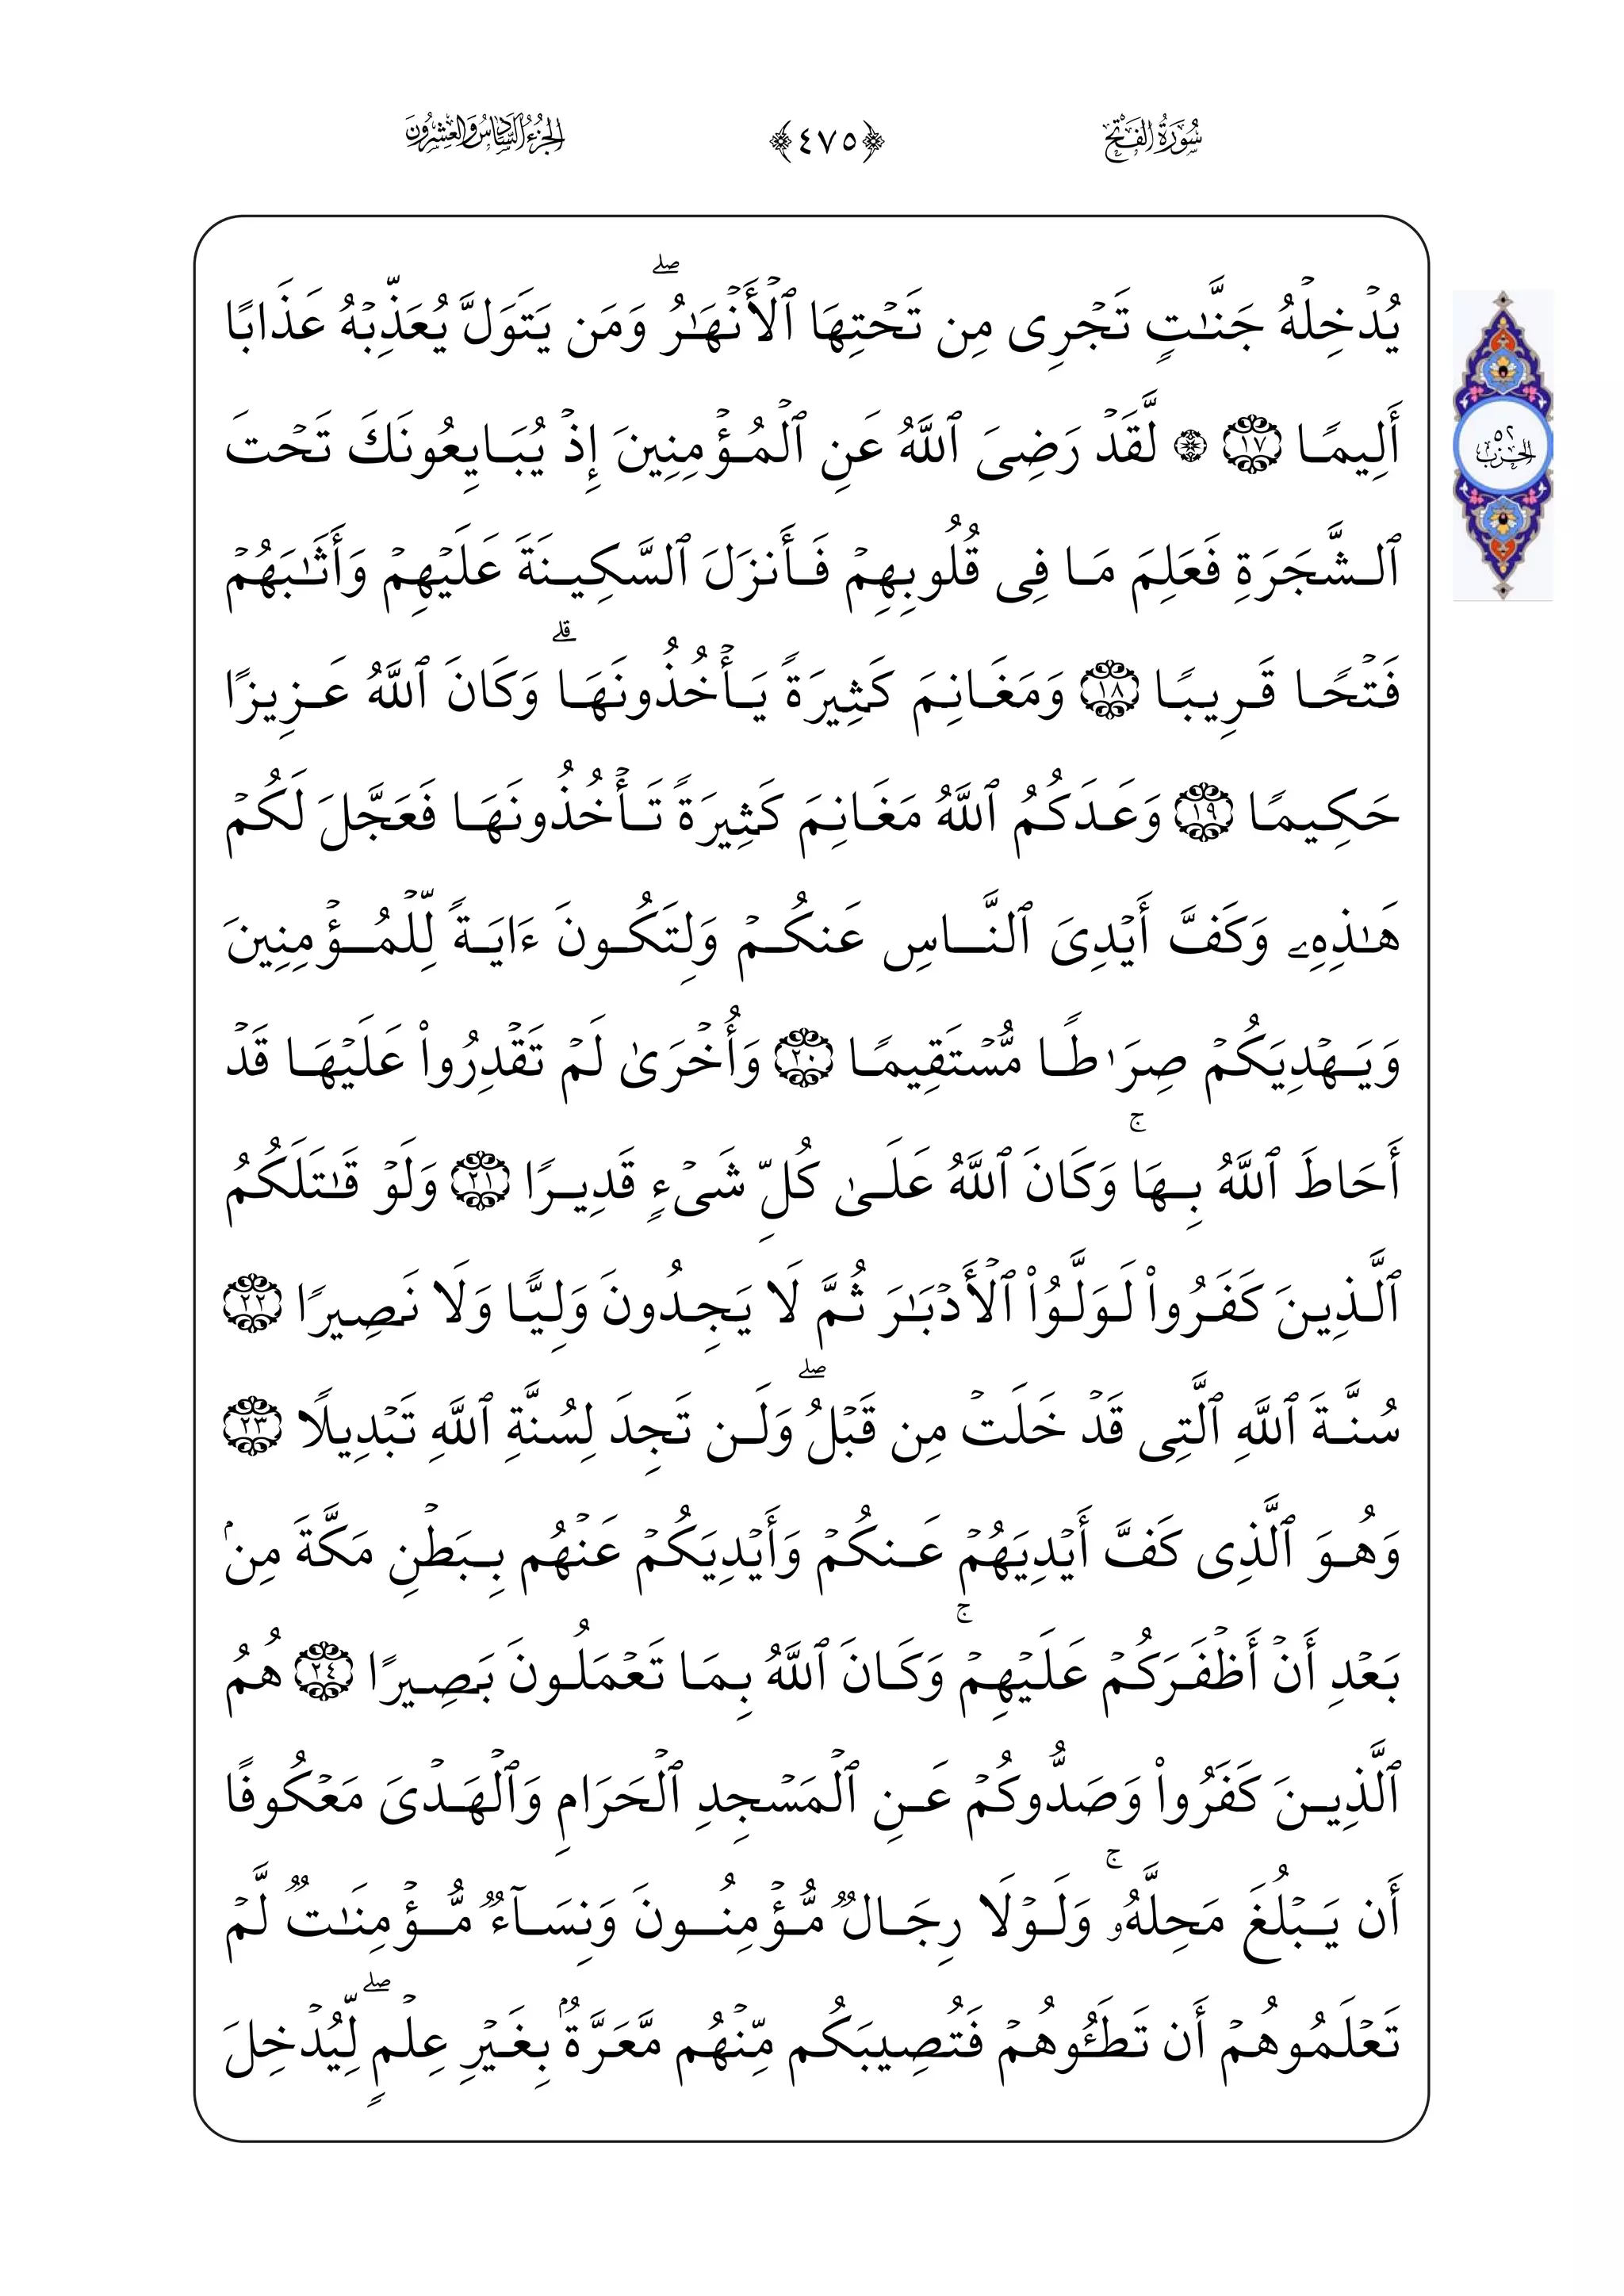 سُورَةُ الفَتْحِ ﴿٤٧٥﴾ الجُزْءُ السَّادِسُ وَالعِشْرُونَ
يُدْخِلْهُ جَنَّـٰتٍ تَجْرِى مِن تَحْتِهَا ٱلْأَنْهَـٰرُ ۖ وَمَن يَتَوَلَّ يُعَذِّبْهُ عَذَابًا
أَلِيمًا ١٧ ۞ لَّقَدْ رَضِىَ ٱللَّهُ عَنِ ٱلْمُؤْمِنِينَ إِذْ يُبَايِعُونَكَ تَحْتَ
الحِزْب ٥٢
ٱلشَّجَرَةِ فَعَلِمَ مَا فِى قُلُوبِهِمْ فَأَنزَلَ ٱلسَّكِينَةَ عَلَيْهِمْ وَأَثَـٰبَهُمْ
فَتْحًا قَرِيبًا ١٨ وَمَغَانِمَ كَثِيرَةً يَأْخُذُونَهَا ۗ وَكَانَ ٱللَّهُ عَزِيزًا
حَكِيمًا ١٩ وَعَدَكُمُ ٱللَّهُ مَغَانِمَ كَثِيرَةً تَأْخُذُونَهَا فَعَجَّلَ لَكُمْ
هَـٰذِهِۦ وَكَفَّ أَيْدِىَ ٱلنَّاسِ عَنكُمْ وَلِتَكُونَ ءَايَةً لِّلْمُؤْمِنِينَ
وَيَهْدِيَكُمْ صِرَٰطًا مُّسْتَقِيمًا ٢٠ وَأُخْرَىٰ لَمْ تَقْدِرُوا۟ عَلَيْهَا قَدْ
أَحَاطَ ٱللَّهُ بِهَا ۚ وَكَانَ ٱللَّهُ عَلَىٰ كُلِّ شَىْءٍ قَدِيرًا ٢١ وَلَوْ قَـٰتَلَكُمُ
ٱلَّذِينَ كَفَرُوا۟ لَوَلَّوُا۟ ٱلْأَدْبَـٰرَ ثُمَّ لَا يَجِدُونَ وَلِيًّا وَلَا نَصِيرًا ٢٢
سُنَّةَ ٱللَّهِ ٱلَّتِى قَدْ خَلَتْ مِن قَبْلُ ۖ وَلَن تَجِدَ لِسُنَّةِ ٱللَّهِ تَبْدِيلًا ٢٣
وَهُوَ ٱلَّذِى كَفَّ أَيْدِيَهُمْ عَنكُمْ وَأَيْدِيَكُمْ عَنْهُم بِبَطْنِ مَكَّةَ مِنۢ
بَعْدِ أَنْ أَظْفَرَكُمْ عَلَيْهِمْ ۚ وَكَانَ ٱللَّهُ بِمَا تَعْمَلُونَ بَصِيرًا ٢٤ هُمُ
ٱلَّذِينَ كَفَرُوا۟ وَصَدُّوكُمْ عَنِ ٱلْمَسْجِدِ ٱلْحَرَامِ وَٱلْهَدْىَ مَعْكُوفًا
أَن يَبْلُغَ مَحِلَّهُۥ ۚ وَلَوْلَا رِجَالٌ مُّؤْمِنُونَ وَنِسَآءٌ مُّؤْمِنَـٰتٌ لَّمْ
تَعْلَمُوهُمْ أَن تَطَـُٔوهُمْ فَتُصِيبَكُم مِّنْهُم مَّعَرَّةٌۢ بِغَيْرِ عِلْمٍ ۖ لِّيُدْخِلَ